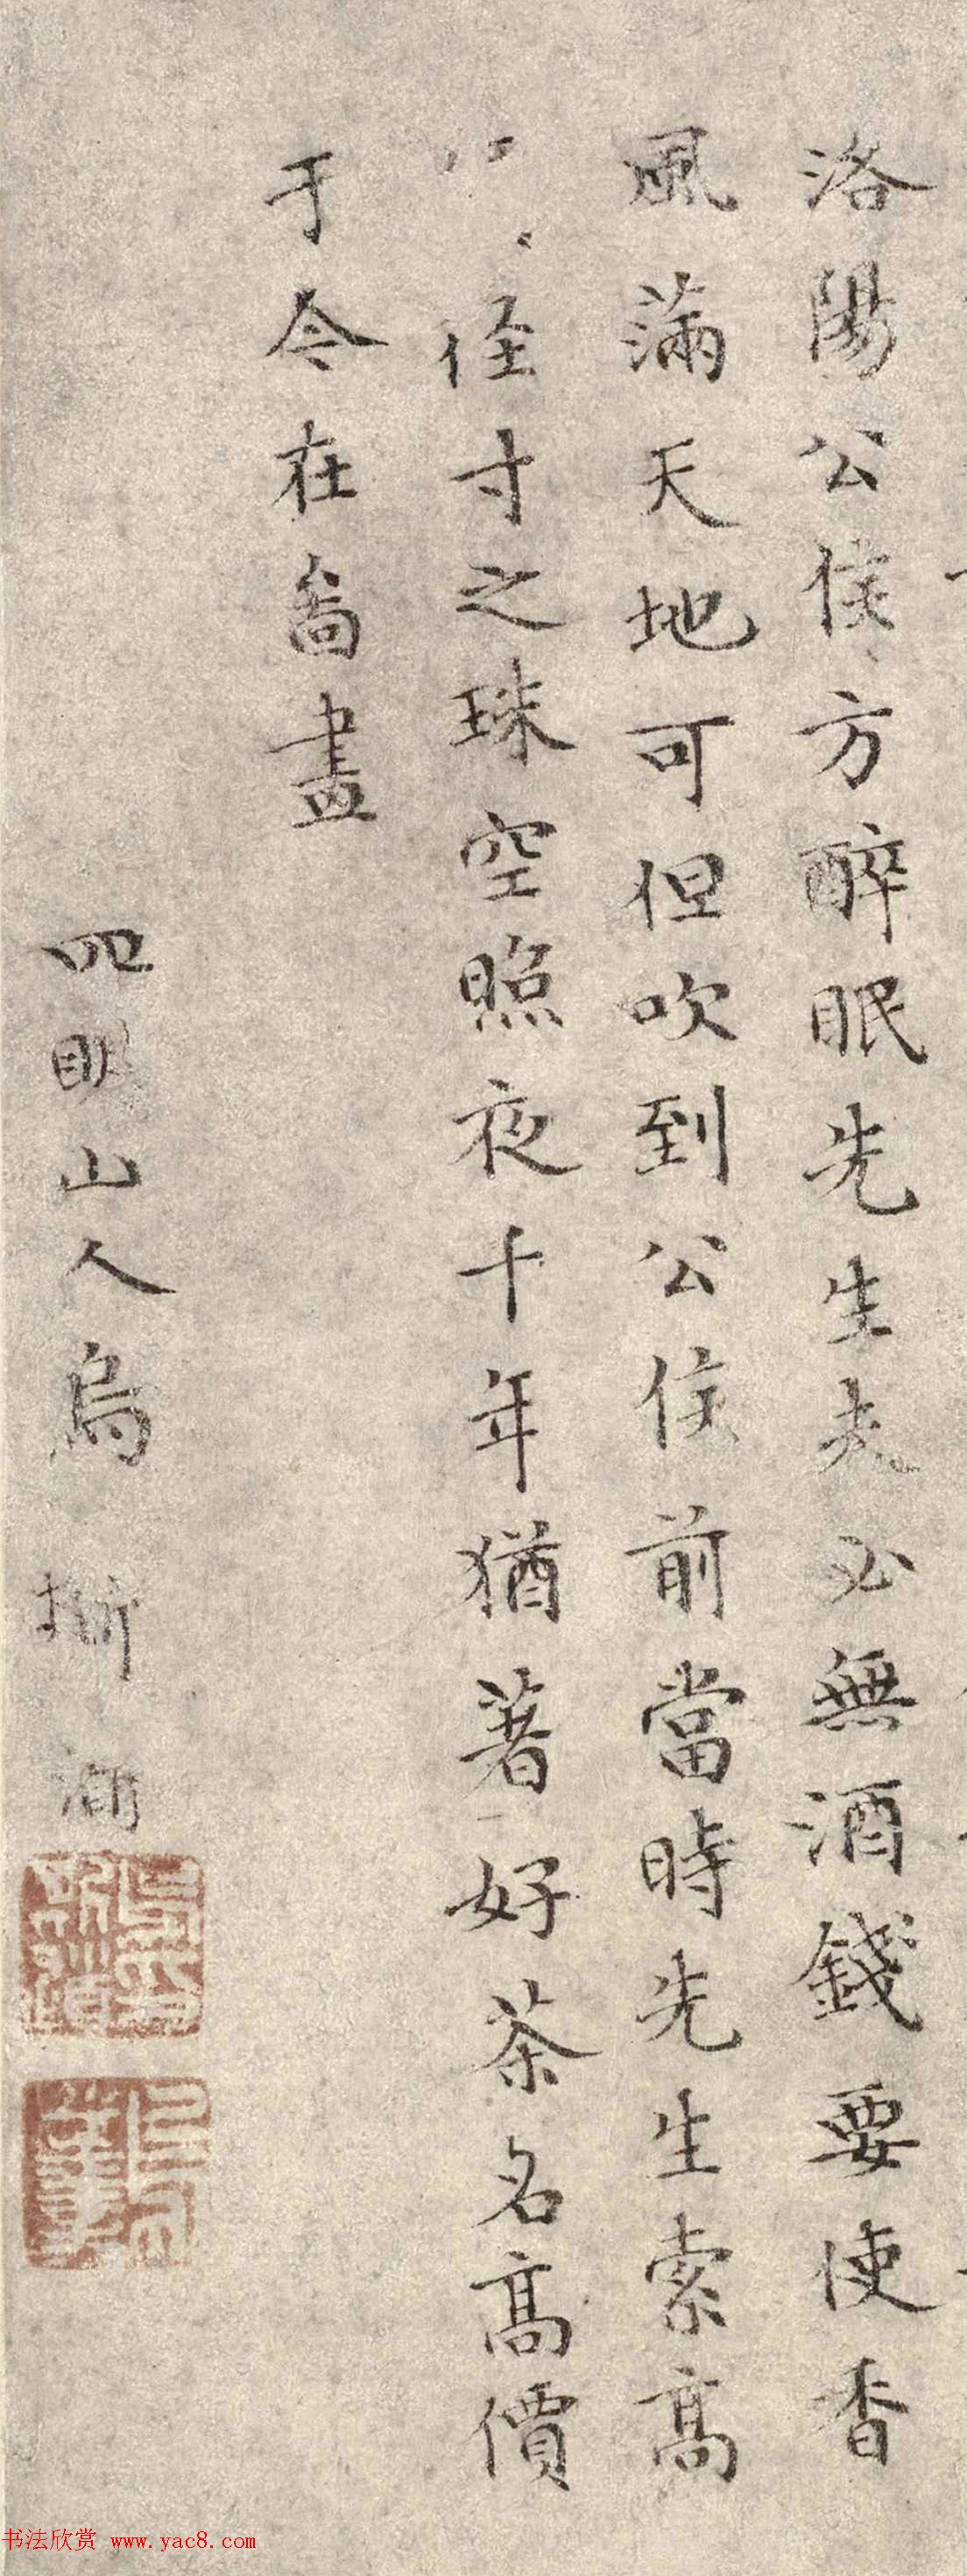 洛陽公侯方醉眠先生夫必無酒錢要使香
風滿天地可但吹到公侯前當時先生索高
径寸之珠空照夜十年猶著好茶名高價
于今在啬盡
四明山人烏斯
书法欣赏 www.yac8.com